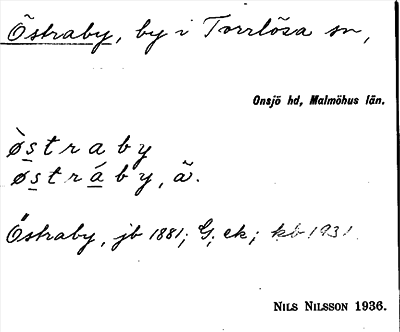 Östraby, by i Torrlösa sn,
Onsjö hd, Malmöhus län.
ø̀straby
østráby, ã.
Östraby, jb 1881; G, ek; kb 1931
NILS NILSSON 1936.